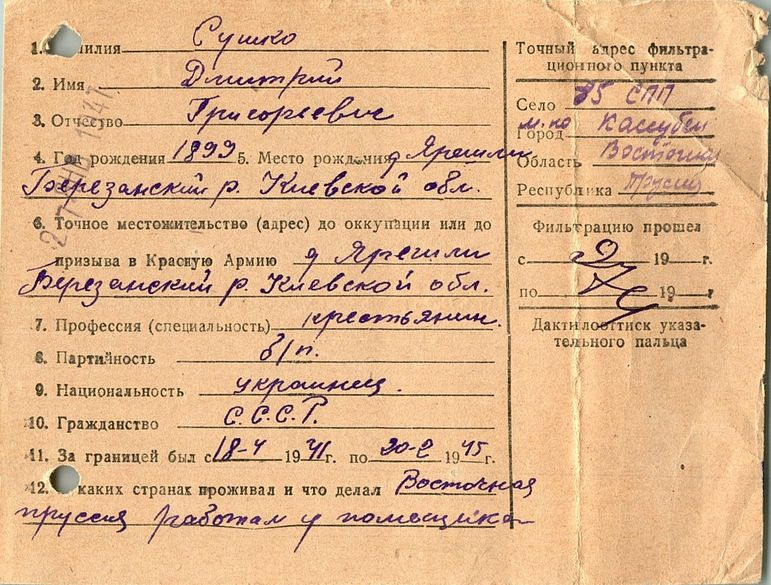 1. илия Сушко
2. Имя Дмитрий
3. Отчество Григорьевич
4. Год рождения 1899 5. Место рождения д Ярешки
Березанский р. Киевской обл.
6. Точное местожительство (адрес) до оккупации или до
призыва в Красную Армию д Ярешки
Березанский р. Киевской обл.
7. Профессия (специальность) крестьянин.
8. Партийность б/п.
9. Национальность украинец.
10. Гражданство С.С.С.Р.
11. За границей был с 18-4 1941 г. по 20-2 1945 г.
12. каких странах проживал и что делал Восточная
пруссия работал у помещика
Точный адрес фильтра-
ционного пункта
Село 85 СПП
Город м-ко Кассубен
Область Восточная
Республика Пруссия
Фильтрацию прошел
с 19 г.
по 19 г
Дактилооттиск указа-
тельного пальца